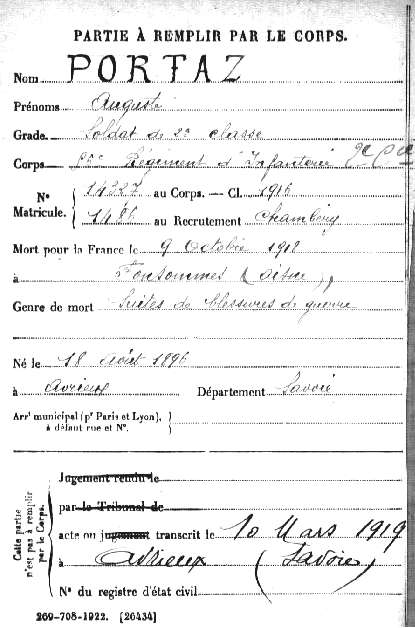 PARTIE À REMPLIR PAR LE CORPS.
Nom PORTAZ
Prénoms Auguste
Grade Soldat de 2e classe
Corps Régiment d'Infanterie
N° Matricule. 14227 au Corps. — Cl. 1916
1486 au Recrutement Chambéry
Mort pour la France le 9 Octobre 1918
à Fonsommes (Aisne)
Genre de mort Suites de blessures de guerre
Né le 18 Août 1896
à Avrieux Département Savoie
Arrt municipal (pr Paris et Lyon),
à défaut rue et N°.
Cette partie n'est pas à remplir par le Corps.
Jugement rendu le
par le Tribunal de
acte ou jugement transcrit le 10 Mars 1919
à Avrieux (Savoie)
N° du registre d'état civil
269-708-1922. [26434]